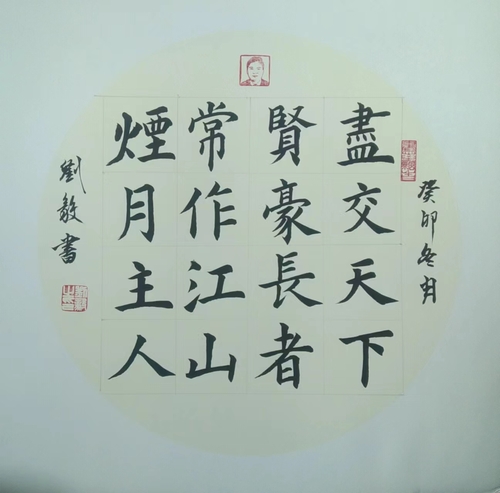 癸卯冬月
盡交天下
賢豪長者
常作江山
煙月主人
劉毅書